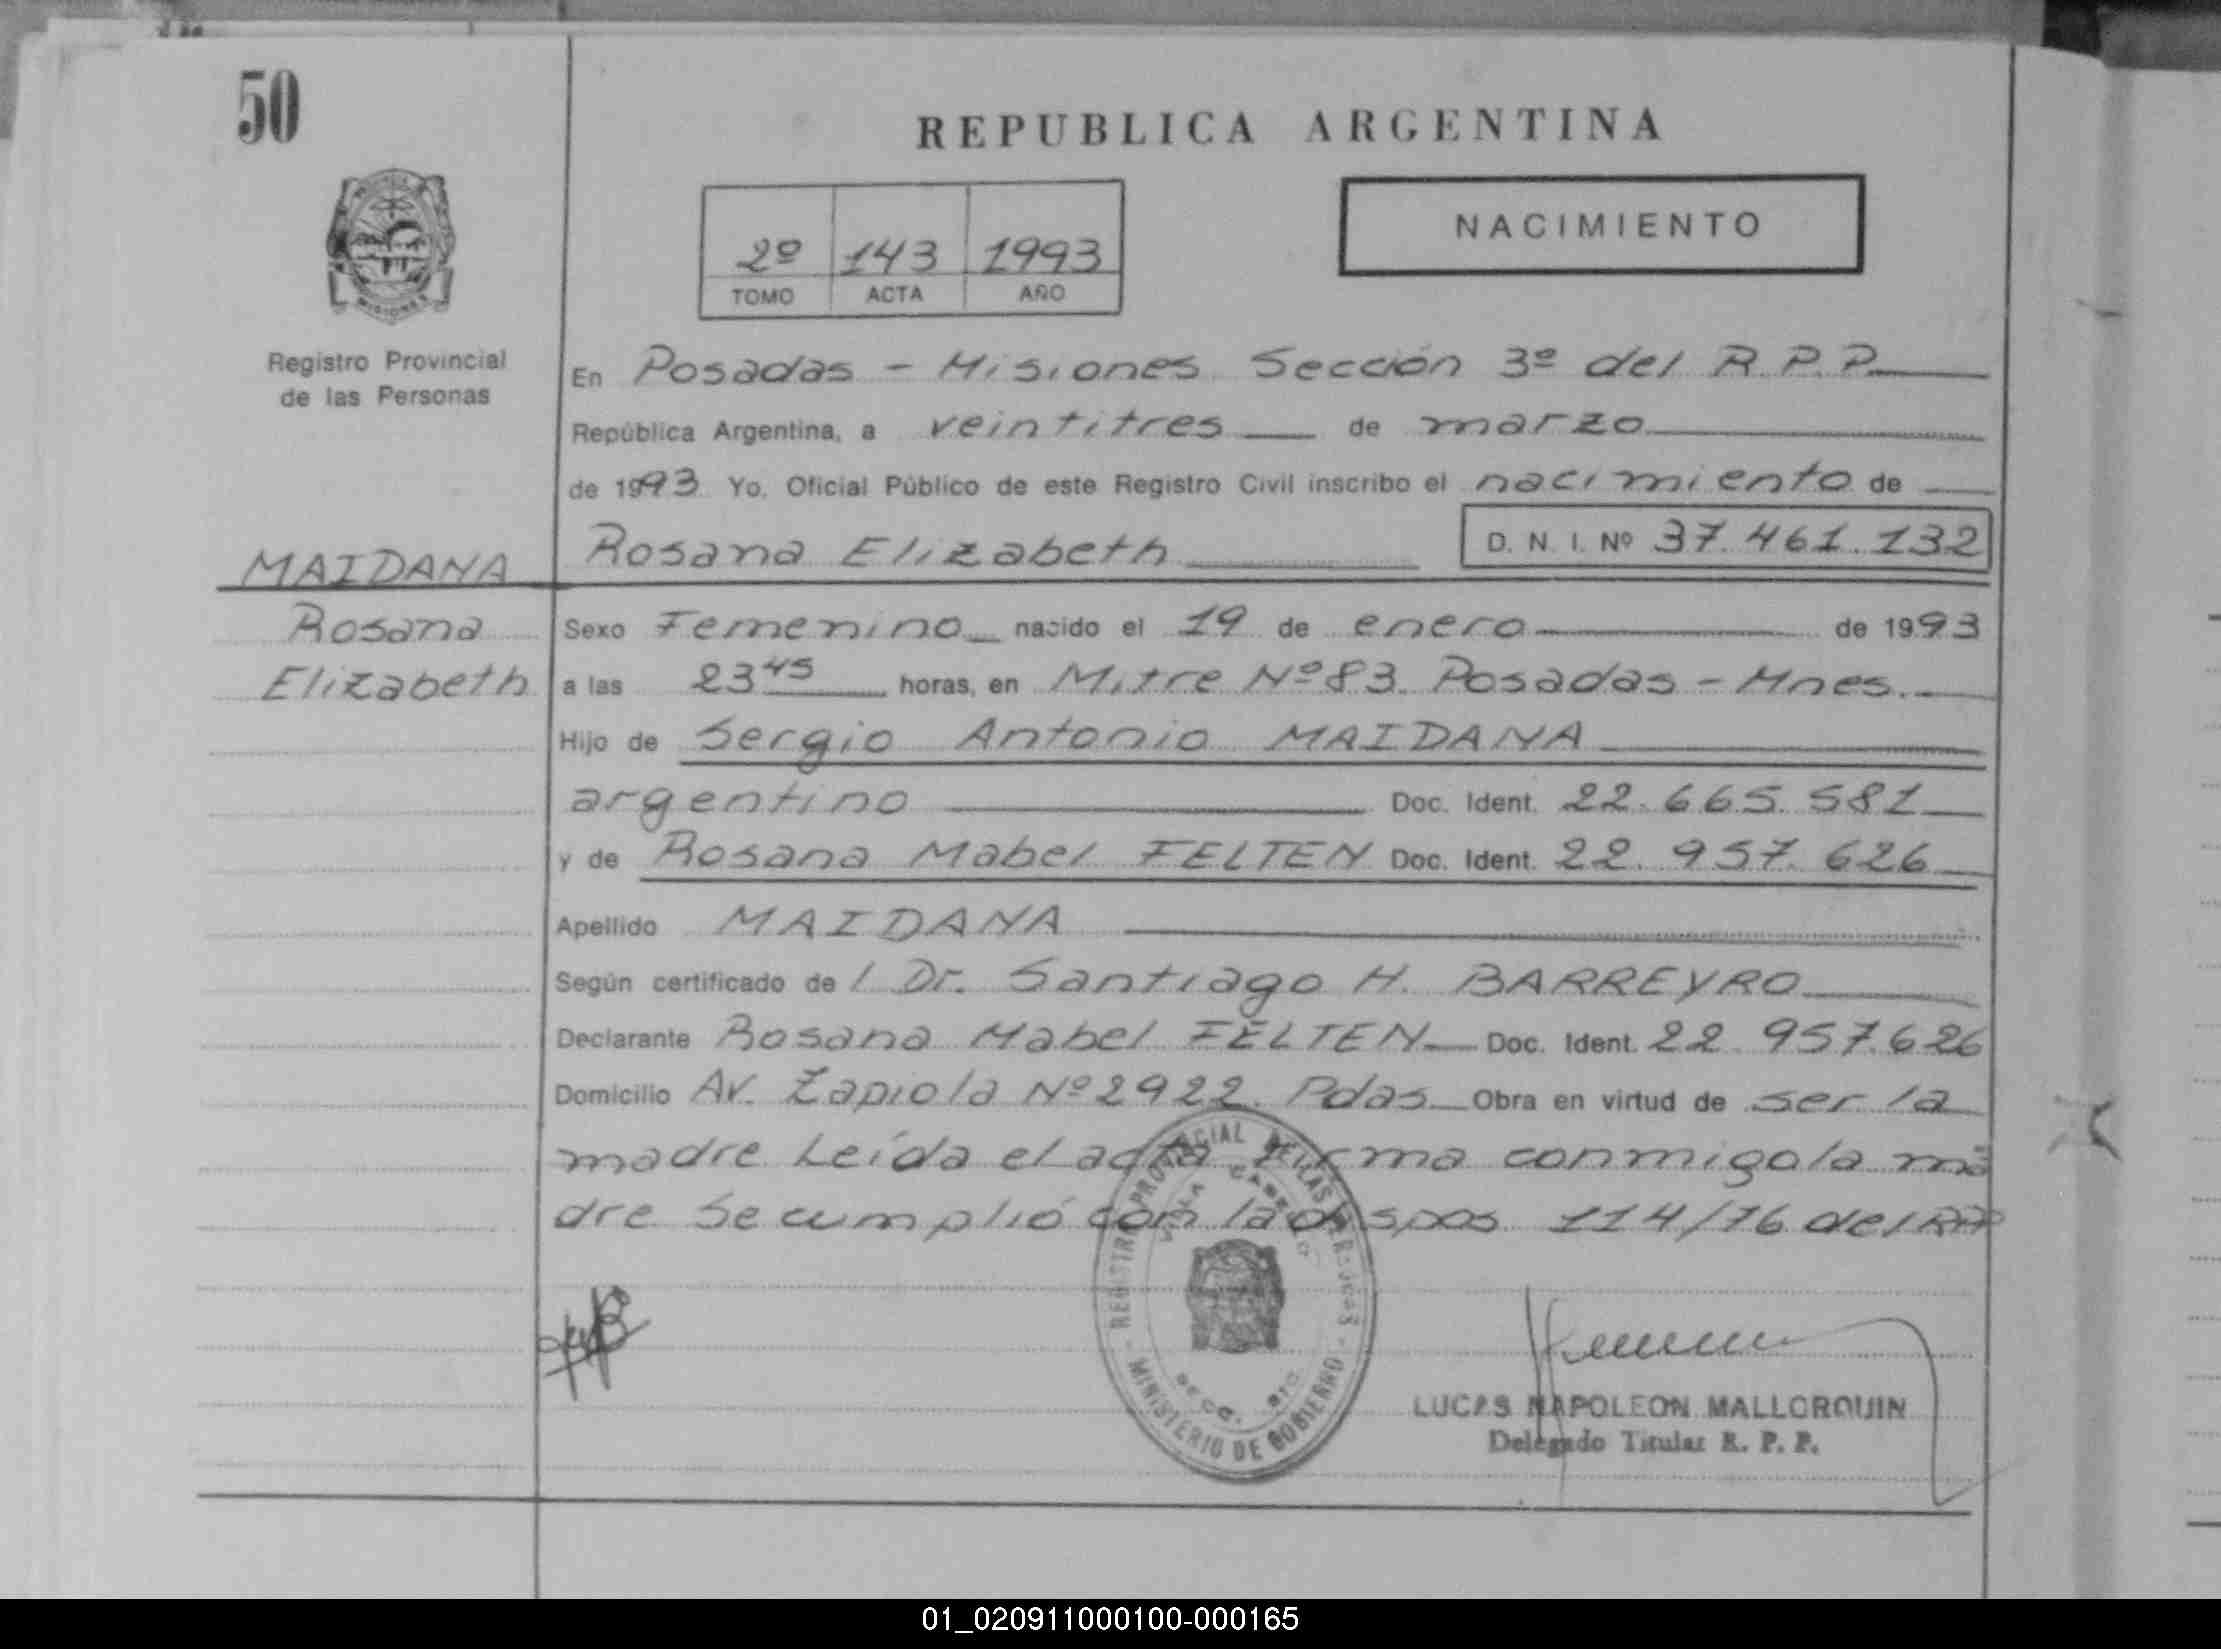 50
REPUBLICA ARGENTINA
2º 143 1993
TOMO ACTA AÑO
NACIMIENTO
PROVINCIA DE
MISIONES
Registro Provincial
de las Personas
MAIDANA
Rosana
Elizabeth
En Posadas - Misiones. Sección 3º del R.P.P.
República Argentina, a veintitres de marzo
de 1993 Yo, Oficial Público de este Registro Civil inscribo el nacimiento de
Rosana Elizabeth D. N. I. Nº 37.461.132
Sexo Femenino nacido el 19 de enero de 1993
a las 23 45 horas, en Mitre Nº 83. Posadas - Mnes.
Hijo de Sergio Antonio MAIDANA
argentino Doc. Ident. 22.665.581
y de Rosana Mabel FELTEN Doc. Ident. 22.957.626
Apellido MAIDANA
Según certificado de l Dr. Santiago H. BARREYRO
Declarante Rosana Mabel FELTEN Doc. Ident. 22.957.626
Domicilio Av. Zapiola Nº 2922. Pdas Obra en virtud de ser la
madre Leída el acta firma conmigo la ma
dre Se cumplió con la dispos 114/76 del RPP
REGISTRO PROVINCIAL DE LAS PERSONAS
VILLA CABELLO
SECC. 3ra.
- MINISTERIO DE GOBIERNO -
LUCAS NAPOLEON MALLORQUIN
Delegado Titular R. P. P.
01_020911000100-000165